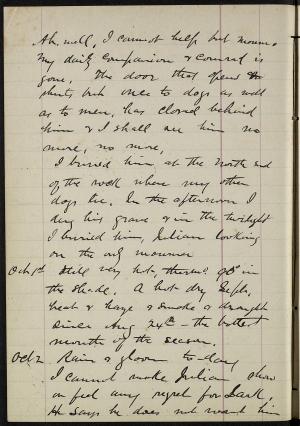 Ah, well, I cannot help but mourn.
My daily companion & comrad is
gone. The door that opens &
shuts but once to dogs as well
as to men, has closed behind
him & I shall see him no
more, no more.
I buried him at the north end
of the rock where my other
dogs lie. In the afternoon I
dug his grave & in the twilight
I buried him, Julian looking
on the only mourner
Oct 1st Still very hot, therm. 90° in
the shade. A hot dry Sept.
heat & haze & smoke & drought
since Aug 24th – the hottest
month of the season.
Oct 2 Rain & gloom to-day
I cannot make Julian show
or feel any regret for Lark.
He says he does not want him